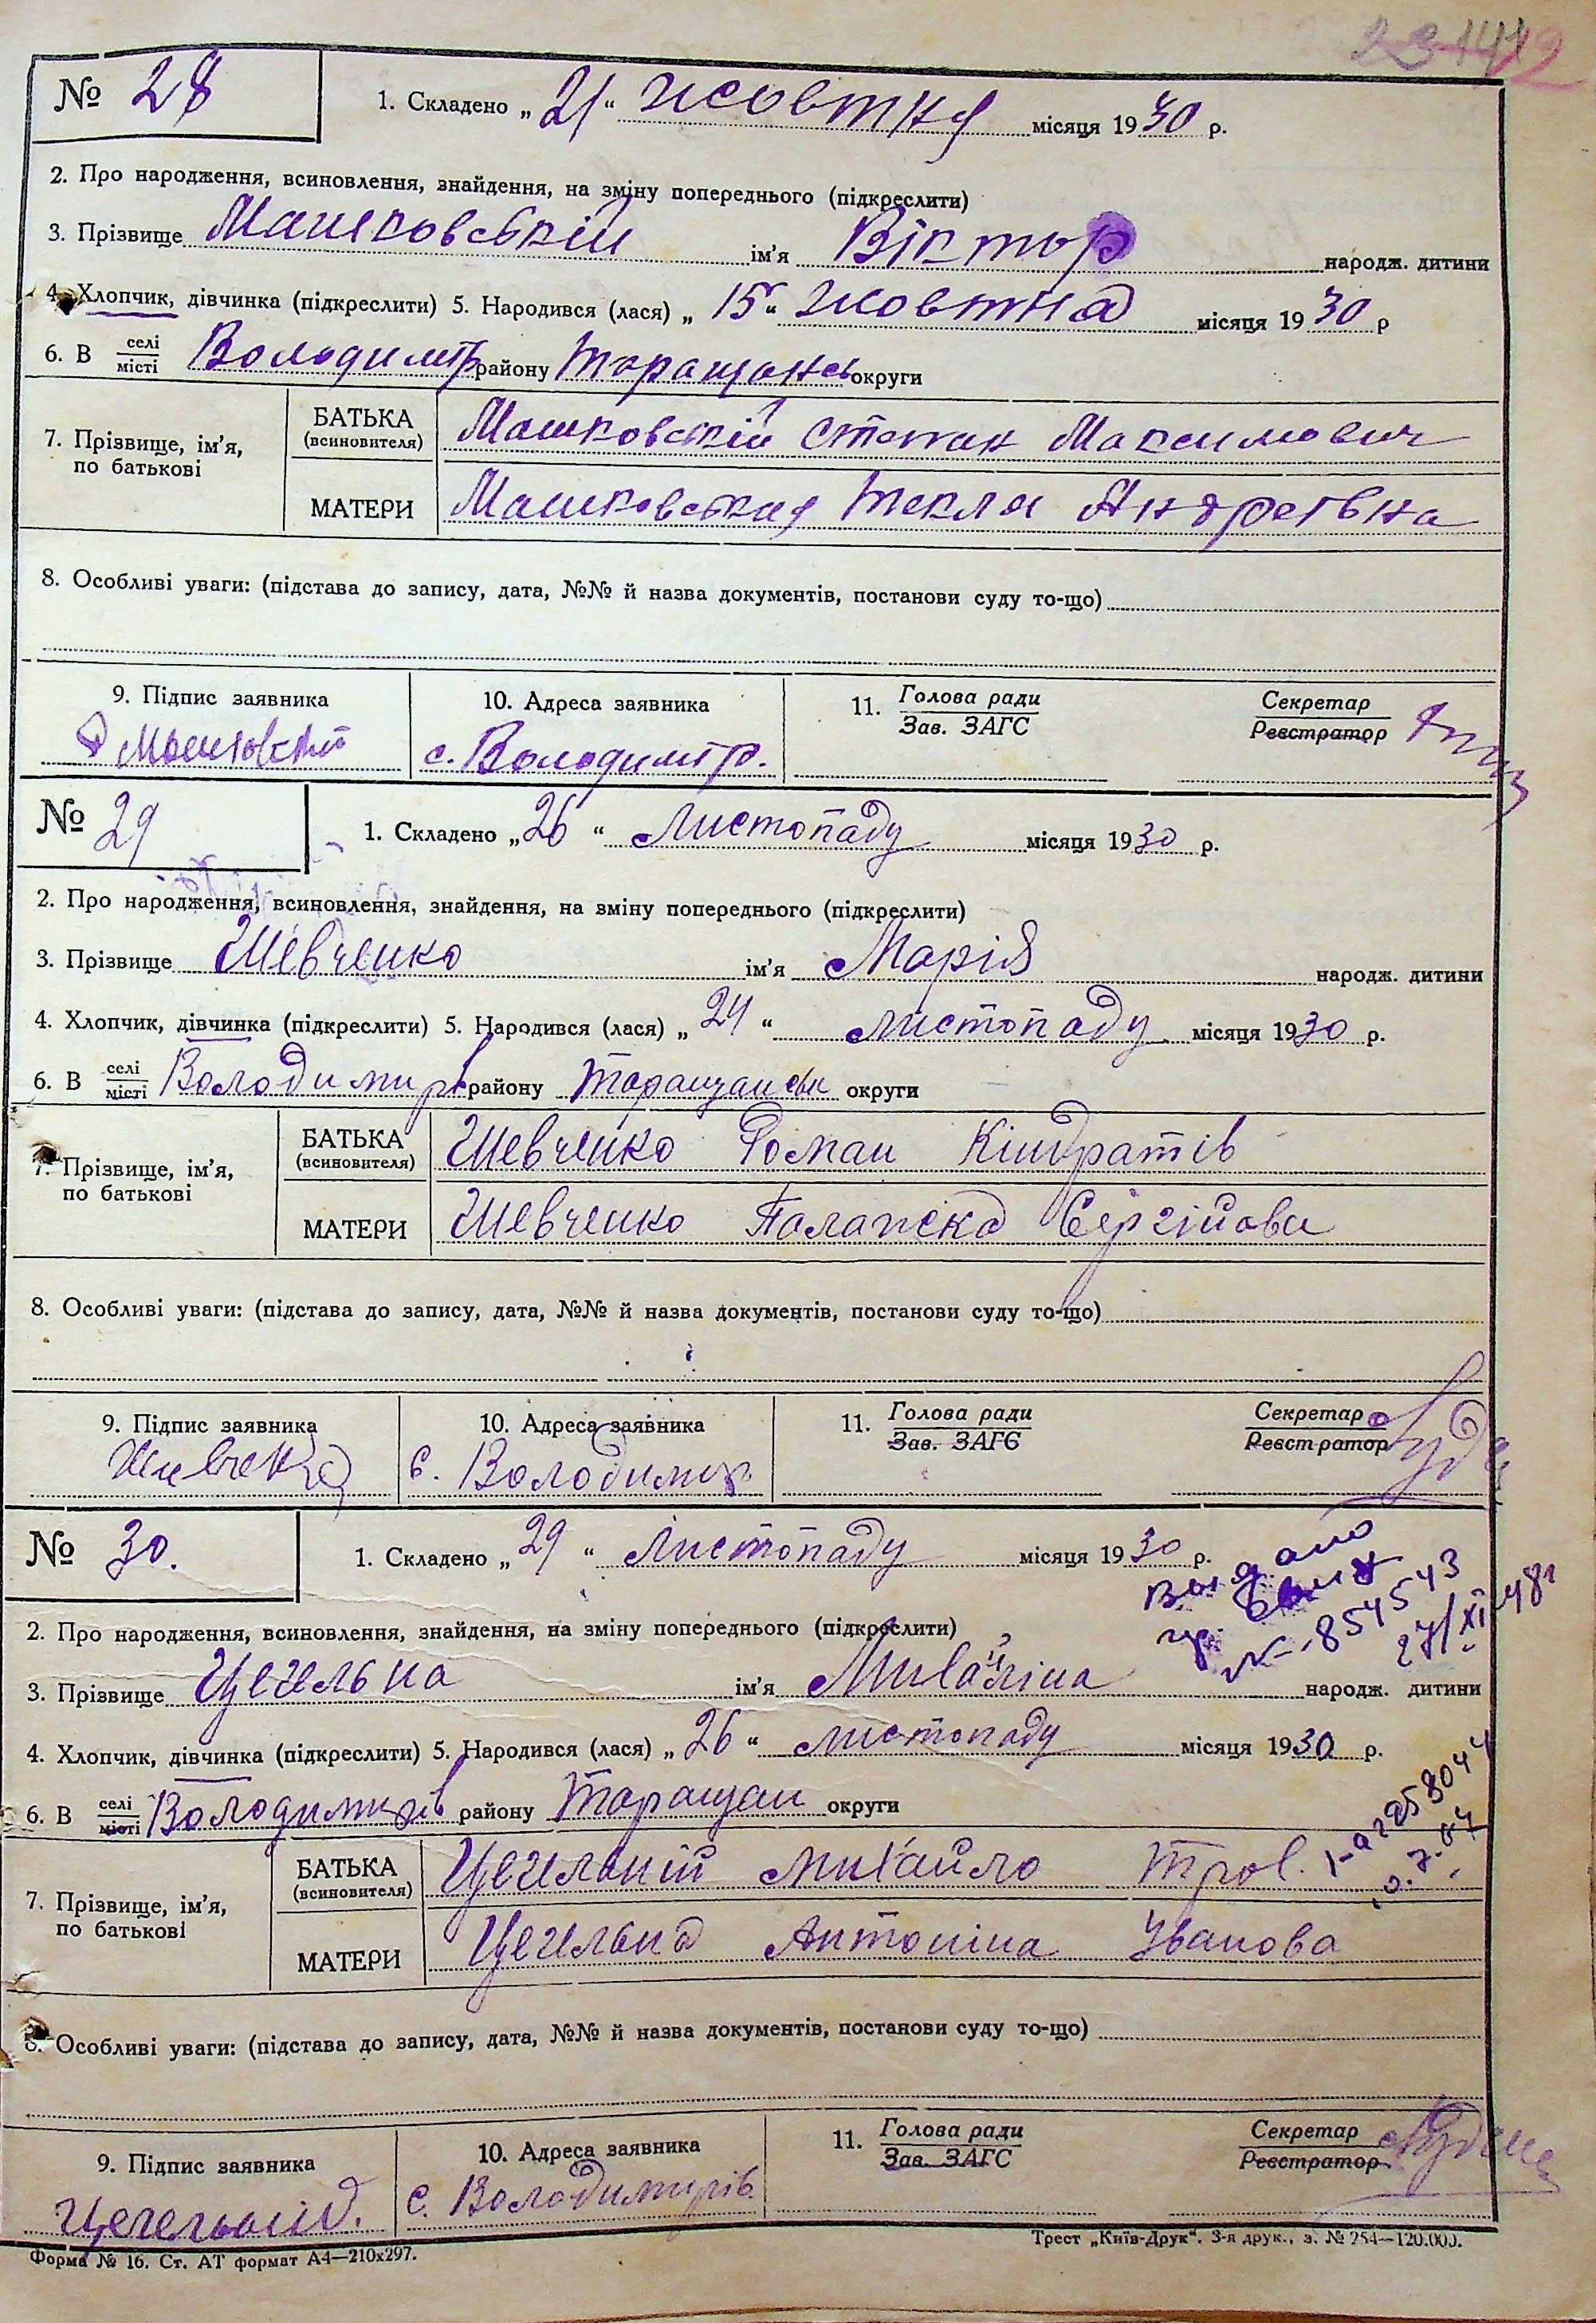 № 28
1. Складено „21“ жовтня місяця 1930 р.
2. Про народження, всиновлення, знайдення, на зміну попереднього (підкреслити)
3. Прізвище Машковський ім'я Віктор народж. дитини
4. Хлопчик, дівчинка (підкреслити) 5. Народився (лася) „15“ жовтня місяця 1930 р
6. В селі місті Володимір району Таращанськ округи
7. Прізвище, ім'я, по батькові
БАТЬКА (всиновителя) Машковській Степан Максимович
МАТЕРИ Машковская Текля Андреівна
8. Особливі уваги: (підстава до запису, дата, №№ й назва документів, постанови суду то-що)
9. Підпис заявника 10. Адреса заявника 11. Голова ради Зав. ЗАГС Секретар Реєстратор
Машковский с. Володимір.
№ 29
1. Складено „26“ Листопаду місяця 1930 р.
2. Про народження, всиновлення, знайдення, на зміну попереднього (підкреслити)
3. Прізвище Шевченко ім'я Марія народж. дитини
4. Хлопчик, дівчинка (підкреслити) 5. Народився (лася) „24“ листопаду місяця 1930 р.
6. В селі місті Володимирів району Таращанськ округи
7. Прізвище, ім'я, по батькові
БАТЬКА (всиновителя) Шевченко Роман Кіндратів
МАТЕРИ Шевченко Палажка Сергійова
8. Особливі уваги: (підстава до запису, дата, №№ й назва документів, постанови суду то-що)
9. Підпис заявника 10. Адреса заявника 11. Голова ради Зав. ЗАГС Секретар Реєстратор
Шевченко с. Володимир
№ 30.
1. Складено „29“ Листопаду місяця 1930 р.
Выдано
2. Про народження, всиновлення, знайдення, на зміну попереднього (підкреслити)
№ 854543 27/XI-48г
3. Прізвище Цегельна ім'я народж. дитини
4. Хлопчик, дівчинка (підкреслити) 5. Народився (лася) „26“ листопаду місяця 1930 р.
6. В селі місті Володимирів району Таращан округи
7. Прізвище, ім'я, по батькові
БАТЬКА (всиновителя) Цегельний Михайло
МАТЕРИ Цегельна Антоніна Іванова
8. Особливі уваги: (підстава до запису, дата, №№ й назва документів, постанови суду то-що)
9. Підпис заявника 10. Адреса заявника 11. Голова ради Зав. ЗАГС Секретар Реєстратор
с. Володимирів
Форма № 16. Ст. АТ формат А4—210х297.
Трест „Київ-Друк“. 3-я друк., з. № 254—120.000.